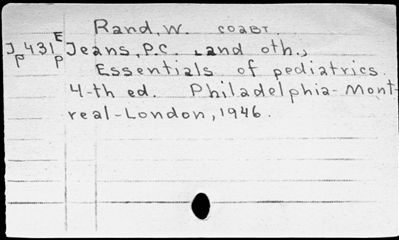 Rand, W. COABT.
J 431 E Jeans, P.C. and oth.,
P P Essentials of pediatrics
4-th ed. Philadelphia-Mont-
real-London, 1946.